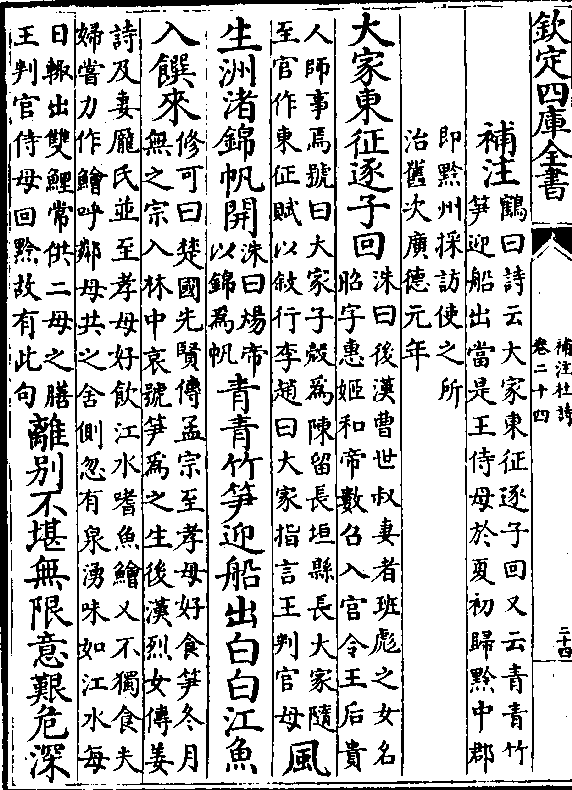 欽定四庫全書
補注杜詩
卷二十四
二十四
補注
鶴曰詩云大家東征逐子回又云青青竹
笋迎船出當是王侍母於夏初歸黔中郡
即黔州採訪使之所
治舊次廣德元年
大家東征逐子回
洙曰後漢曹世叔妻者班彪之女名
昭字惠姬和帝數召入宮令王后貴
人師事焉號曰大家子殻為陳留長垣縣長大家隨
至官作東征賦以敘行李趙曰大家指言王判官母
風
生洲渚錦帆開
洙曰煬帝
以錦為帆
青青竹笋迎船出白白江魚
入饌來
修可曰楚國先賢傳孟宗至孝母好食笋冬月
無之宗入林中哀號笋為之生後漢烈女傳姜
詩及妻龎氏並至孝母好飲江水嗜魚鱠又不獨食夫
婦嘗力作鱠呼鄰母共之舍側忽有泉湧味如江水每
日輒出雙鯉常供二母之膳
王判官侍母回黔故有此句
離别不堪無限意艱危深